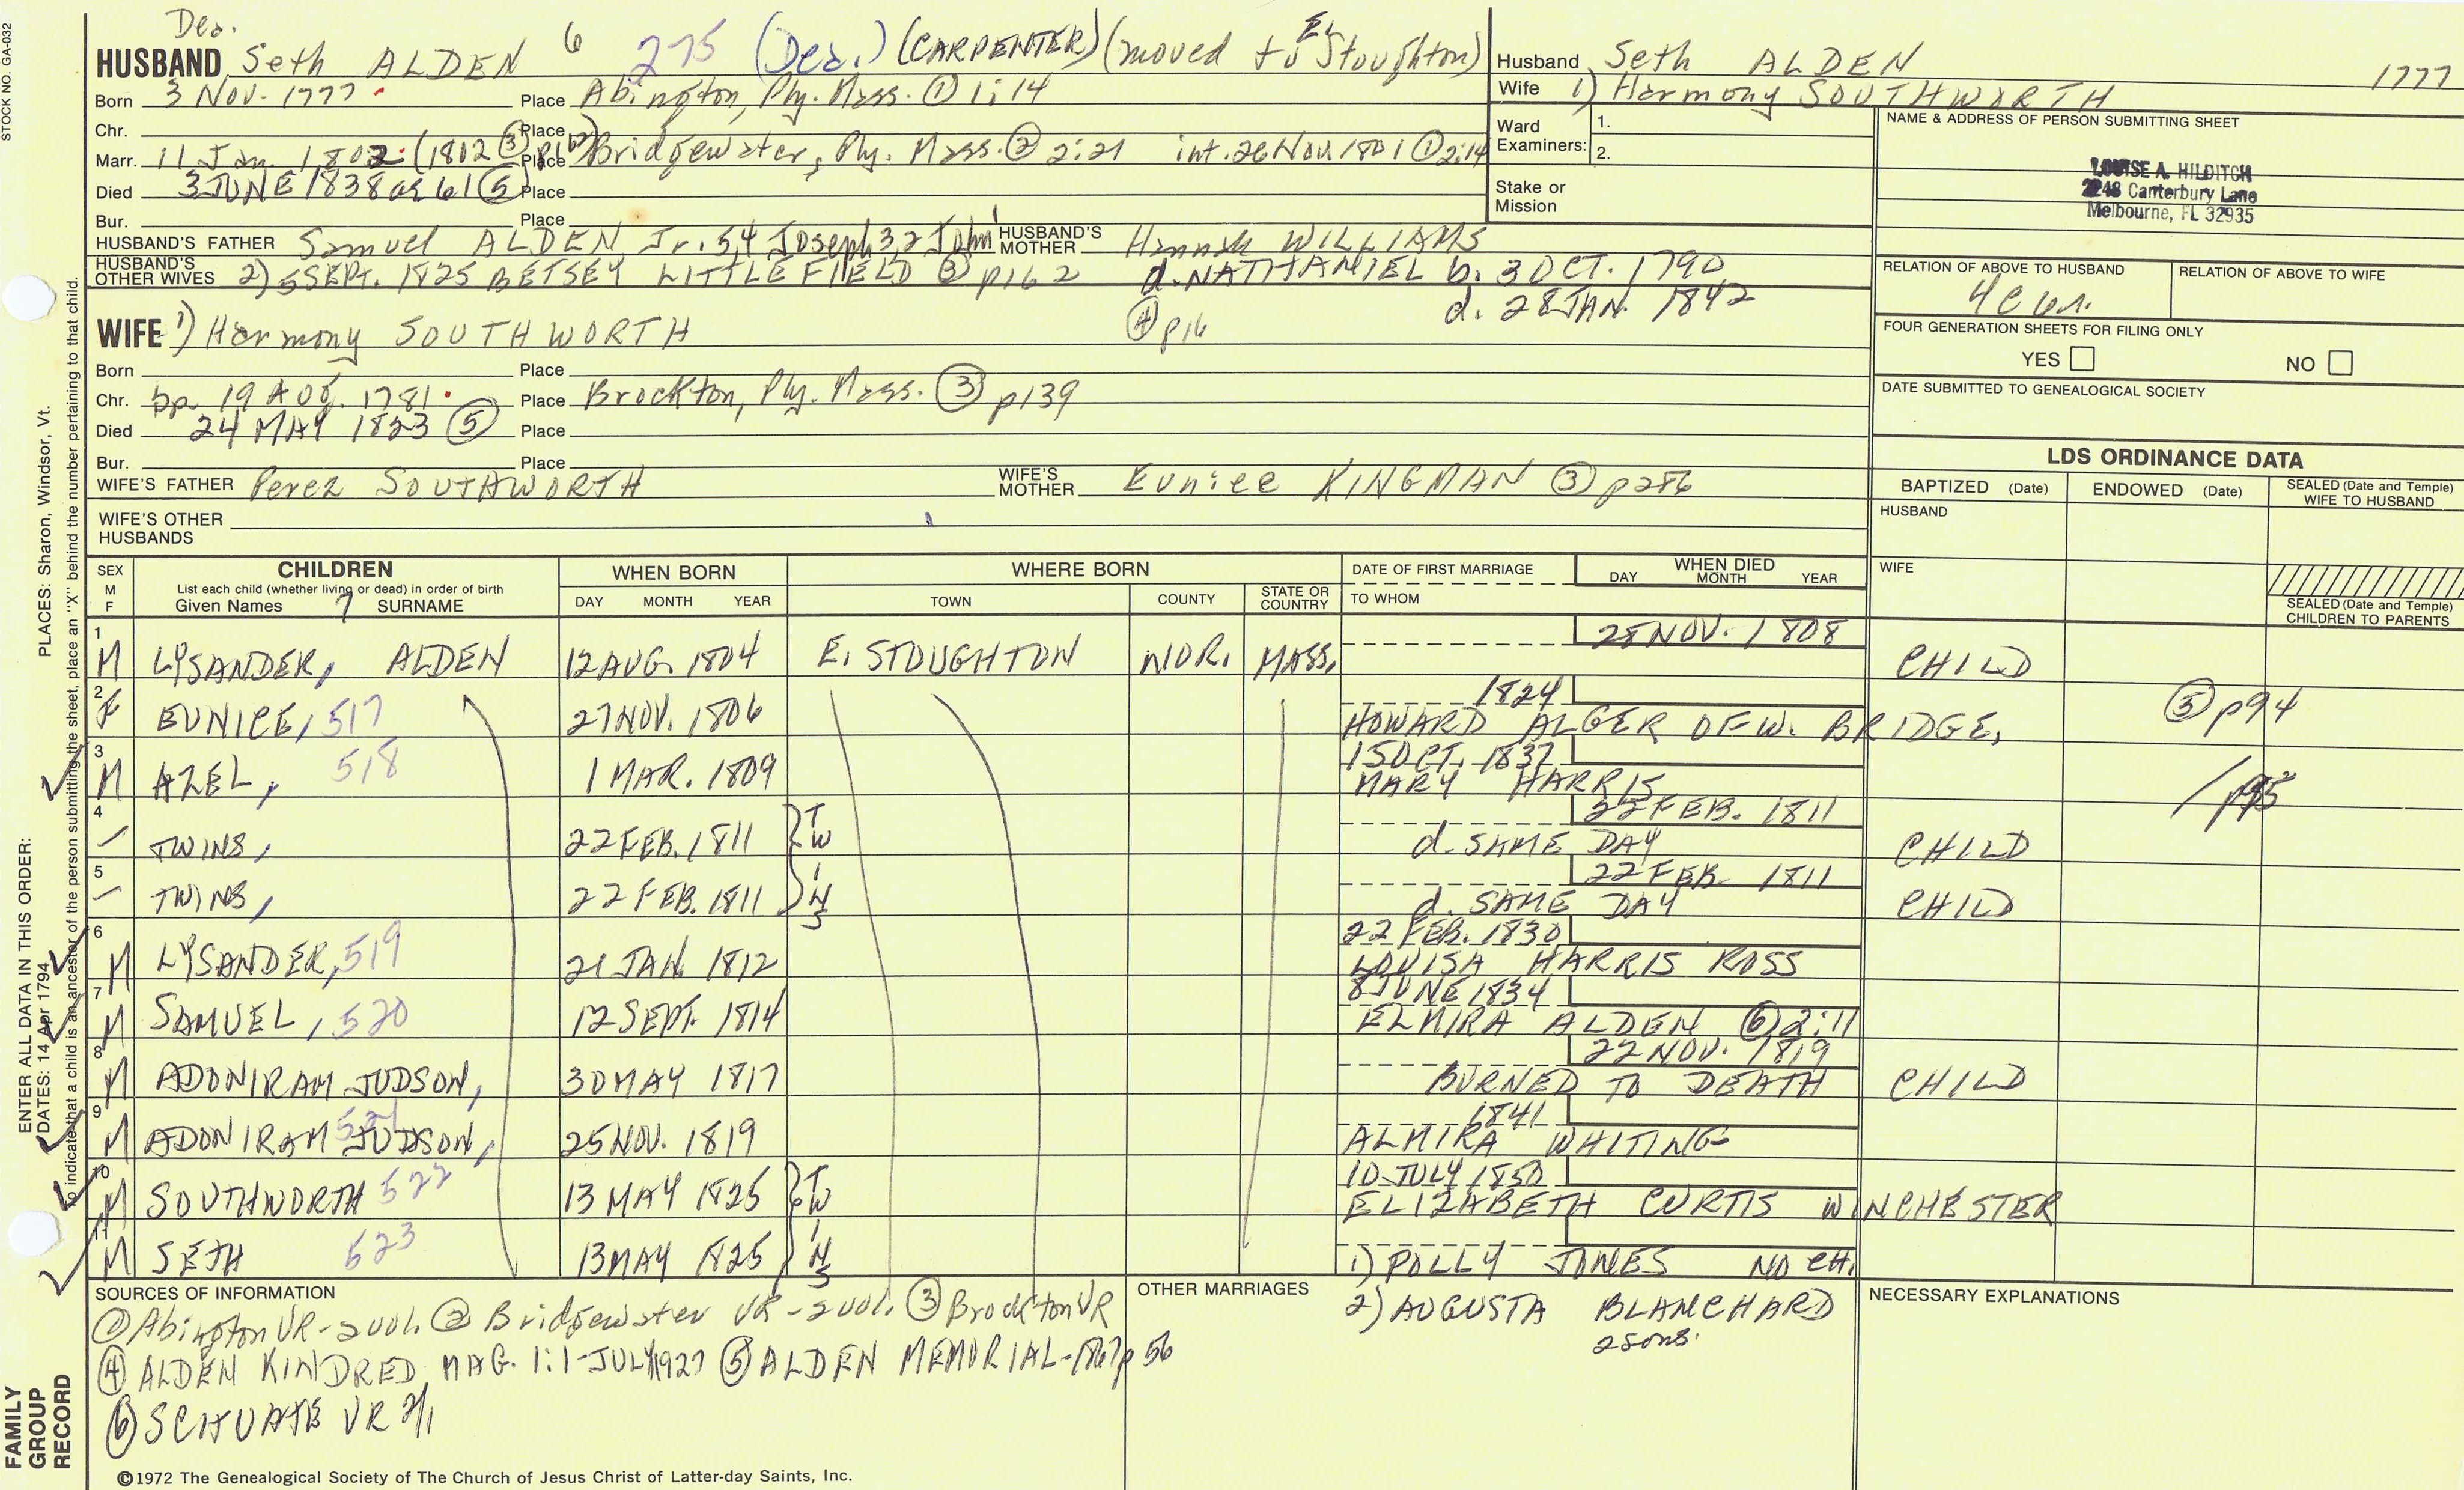 STOCK NO. GA-032
Dea.
HUSBAND Seth ALDEN 6 275 (Dea.) (CARPENTER) (moved to E. Stoughton)
Born 3 Nov. 1777 Place Abington, Ply. Mass. ① 1:14
Chr. Place
Marr. 11 Jan. 1802 (1802 ③ p162) Place Bridgewater, Ply. Mass. ② 2:21 int. 26 Nov. 1801 ① 2:14
Died 3 JUNE 1838 ae 61 ⑤ Place
Bur. Place
HUSBAND'S FATHER Samuel ALDEN Jr. 5,4 Joseph 3,2 John 1 HUSBAND'S MOTHER Hannah WILLIAMS
HUSBAND'S OTHER WIVES 2) 5 SEPT. 1825 BETSEY LITTLEFIELD ③ p162 d. NATHANIEL b. 3 OCT. 1790
④ p16 d. 28 JAN. 1842
WIFE 1) Harmony SOUTHWORTH
Born Place
Chr. bp. 19 Aug. 1781 Place Brockton, Ply. Mass. ③ p139
Died 24 MAY 1823 ⑤ Place
Bur. Place
WIFE'S FATHER Perez SOUTHWORTH WIFE'S MOTHER Eunice KINGMAN ③ p286
WIFE'S OTHER HUSBANDS
Husband Seth ALDEN 1777
Wife 1) Harmony SOUTHWORTH
Ward Examiners: 1.
2.
Stake or Mission
NAME & ADDRESS OF PERSON SUBMITTING SHEET
LOUISE A. HILDITCH
2248 Canterbury Lane
Melbourne, FL 32935
RELATION OF ABOVE TO HUSBAND RELATION OF ABOVE TO WIFE
FOUR GENERATION SHEETS FOR FILING ONLY
YES NO
DATE SUBMITTED TO GENEALOGICAL SOCIETY
LDS ORDINANCE DATA
BAPTIZED (Date) ENDOWED (Date) SEALED (Date and Temple) WIFE TO HUSBAND
HUSBAND
WIFE
SEALED (Date and Temple) CHILDREN TO PARENTS
SEX M F CHILDREN WHEN BORN WHERE BORN DATE OF FIRST MARRIAGE WHEN DIED
List each child (whether living or dead) in order of birth
Given Names 7 SURNAME DAY MONTH YEAR TOWN COUNTY STATE OR COUNTRY TO WHOM DAY MONTH YEAR
1 M LYSANDER, ALDEN 12 AUG. 1804 E. STOUGHTON NOR. MASS. 28 NOV. 1808 CHILD
2 F EUNICE, 517 27 NOV. 1806 1824 HOWARD ALGER OF W. BRIDGE, ③ p94
3 M AZEL, 518 1 MAR. 1809 15 OCT. 1837 MARY HARRIS / p95
4 – TWINS, 22 FEB. 1811 TWINS 22 FEB. 1811 d. SAME DAY CHILD
5 – TWINS, 22 FEB. 1811 22 FEB. 1811 d. SAME DAY CHILD
6 M LYSANDER, 519 21 JAN 1812 22 FEB. 1830 LOUISA HARRIS ROSS
7 M SAMUEL, 520 12 SEPT. 1814 8 JUNE 1834 ELMIRA ALDEN ⑥ 2:11
8 M ADONIRAM JUDSON, 30 MAY 1817 22 NOV. 1819 BURNED TO DEATH CHILD
9 M ADONIRAM JUDSON, 521 25 NOV. 1819 1841 ALMIRA WHITING
10 M SOUTHWORTH 522 13 MAY 1825 TWINS 10 JULY 1850 ELIZABETH CURTIS WINCHESTER
11 M SETH 523 13 MAY 1825 1) POLLY JONES NO CH.
SOURCES OF INFORMATION OTHER MARRIAGES 2) AUGUSTA BLANCHARD NECESSARY EXPLANATIONS
2 sons.
① Abington VR-2vol. ② Bridgewater VR-2vol. ③ Brockton VR
④ ALDEN KINDRED MAG. 1:1-JULY 1927 ⑤ ALDEN MEMORIAL-1867 p 56
⑥ SCITUATE VR 2/1
©1972 The Genealogical Society of The Church of Jesus Christ of Latter-day Saints, Inc.
FAMILY GROUP RECORD
ENTER ALL DATA IN THIS ORDER:
DATES: 14 Apr 1794
PLACES: Sharon, Windsor, Vt.
To indicate that a child is an ancestor of the person submitting the sheet, place an "X" behind the number pertaining to that child.